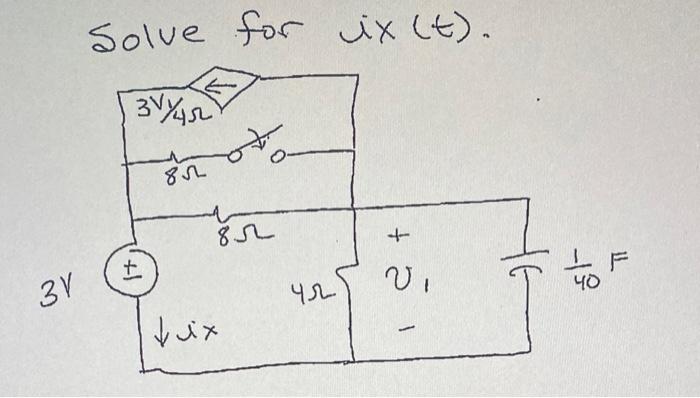 Solve for ix(t).
3V1/4Ω
8Ω
8Ω
+
3V
±
4Ω
v1
1/40 F
-
↓ix